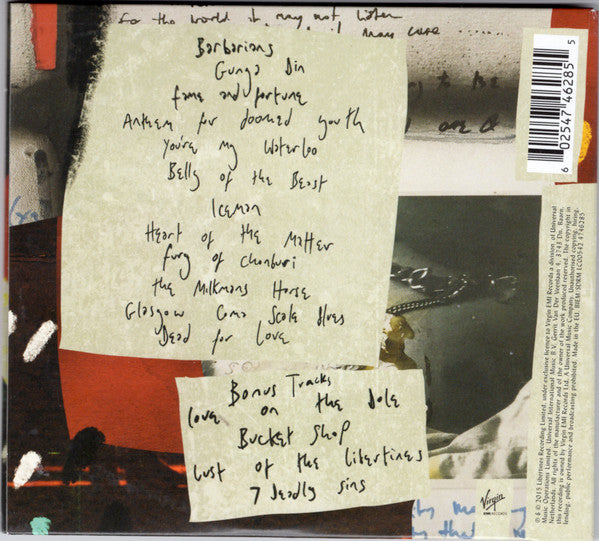 for the world it may not listen
may care
Barbarians
Gunga Din
fame and fortune
Anthem for doomed youth
You're my Waterloo
Belly of the Beast
Iceman
Heart of the Matter
fury of Chonburi
the Milkmans Horse
Glasgow Coma Scale Blues
Dead for Love
Bonus Tracks
Love on the dole
Bucket Shop
Lust of the Libertines
7 Deadly Sins
6 02547 46285 5
℗ & © 2015 Libertines Recording Limited, under exclusive licence to Virgin EMI Records a division of Universal
Music Operations Limited. Universal International Music B.V. Gerrit Van Der Veenlaan 4, 3743 Dn, Baarn,
Netherlands. All rights of the manufacturer and of the owner of the work produced reserved. The copyright in
this recording is owned by Virgin EMI Records Ltd. A Universal Music Company. Unauthorised copying, hiring,
lending, public performance and broadcasting prohibited. Made in the EU. BIEM/SDRM LC00542 4746285
Virgin
EMI RECORDS